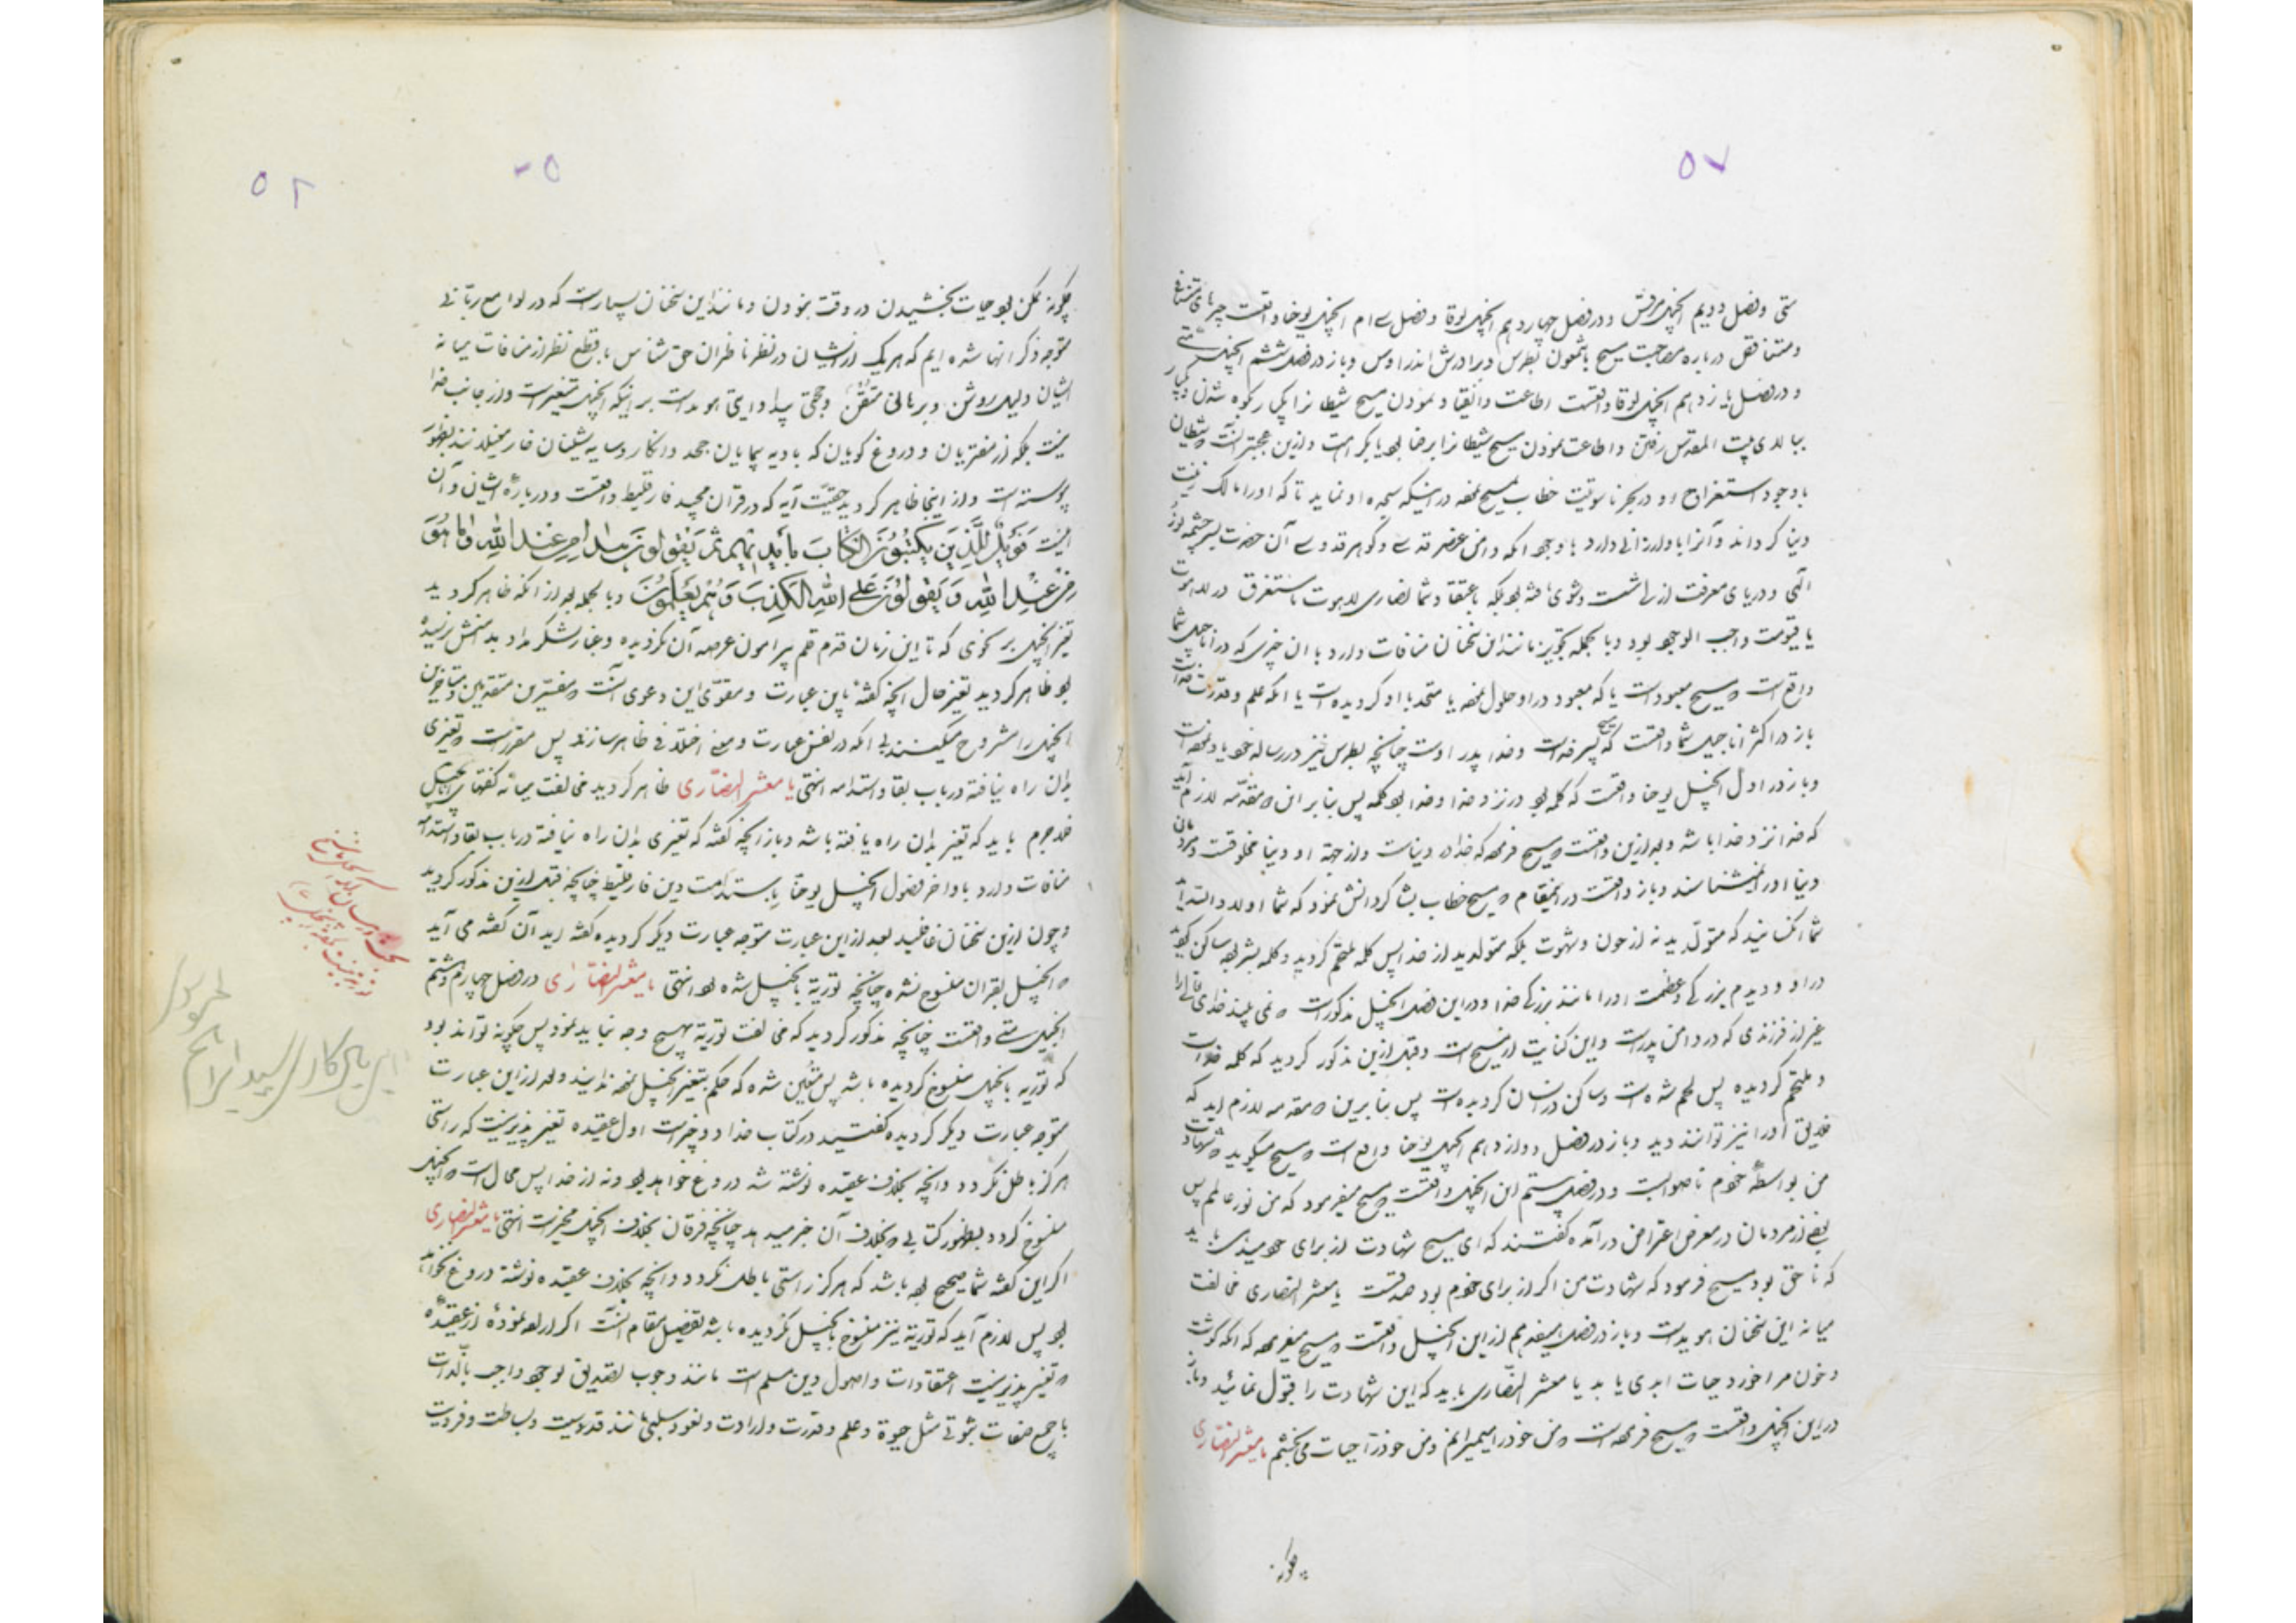 ۵۷
متی و فصل دویم انجیل مرقس و در فصل چهاردهم انجیل لوقا و فصل سی ام انجیل یوحنا واقعست
و متناقض درباره مصاحبت مسیح با شمعون پطرس و برادرش اندراوس و باز در فصل ششم انجیل متی
و در فصل یازدهم انجیل لوقا واقعست اطاعت و انقیاد نمودن مسیح شیطانرا یکی بر کوه شدن و یکبار
ببالای بیت المقدس رفتن و اطاعت نمودن مسیح شیطانرا برضا بود یا بکراهت و ازین عجبتر آنست که شیطان
با وجود استغراق او در بحر ناسوتیت خطاب بمسیح نموده در اینکه سجده او نماید تا که او را مالک زینت
دنیا گرداند و آنرا باو ارزانی دارد با وجود آنکه دامن عنصر قدسی و گوهر قدوسی آن حضرت بسرچشمه نور
الهی و دریای معرفت ازلی شست و شوی یافته بود بلکه باعتقاد شما نصاری لاهوت ناسوت مستغرق در لاهوت
یا قیومت واجب الوجود بود و بالجمله تجویز مانند این سخنان منافات دارد با آن چیزی که در اناجیل شما
واقع است که مسیح معبود است یا که معبود در او حلول نموده یا متحد با او گردیده است یا آنکه علم و قدرت خداست
باز در اکثر اناجیل شما واقعست که مسیح پسر خداست و خدا پدر اوست چنانچه پطرس نیز در رساله خود یاد نموده است
و باز در اول انجیل یوحنا واقعست که کلمه بود در نزد خدا و خدا بود کلمه پس بنا بر این مقدمه لازم آید
که خدا نزد خدا باشد و بعد ازین واقعست که مسیح فرموده که خدا در دنیاست و از جهة او دنیا مخلوقست و مردمان
دنیا او را نمیشناسند و باز واقعست در اینمقام که مسیح خطاب بشاگردانش نمود که شما اولاد الله اید
شما آنکسانید که متولد شدید نه از خون و شهوت بلکه متولدید از خدا پس کلمه ملتحم گردید و کلمه بشر بود ساکن گردید
در او و دیدم بزرگی و عظمت او را مانند بزرگی خدا و در این فصل انجیل مذکور است که نمی بیند خدای تعالی را
غیر از فرزندی که در دامن پدر است و این کنایت از مسیح است و قبل ازین مذکور گردید که کلمه خداست
و ملتحم گردیده پس لحم شده است و ساکن در انسان گردیده است پس بنا برین مقدمه لازم آید که
خلایق او را نیز توانند دید و باز در فصل دوازدهم انجیل یوحنا واقع است که مسیح میگوید که شهادت
من بواسطه خودم ناصوابست و در فصل بیستم این انجیل واقعست که مسیح میفرمود که من نور عالمم پس
بعضی از مردمان در معرض اعتراض در آمده گفتند که ای مسیح شهادت از برای خود میدهی باید
که ناحق بود مسیح فرمود که شهادت من اگر از برای خودم بود صدقست یا معشر النصاری مخالفت
میانه این سخنان هویداست و باز در فصل هفدهم ازین انجیل واقعست که مسیح میفرموده که آنکه گوشت
و خون مرا خورد حیات ابدی یابد یا معشر النصاری باید که این شهادت را قبول نمائید و باز
در این انجیل واقعست که مسیح فرموده است که من خود را میمیرانم و من خود را حیات می بخشم یا معشر النصاری
چکونه
۵۲
چکونه ممکن بود حیات بخشیدن در وقت نبودن و مانند این سخنان بسیار است که در لوامع ربانی
متوجه ذکر آنها شده ایم که هر یک از ایشان در نظر ناظران حق شناس با قطع نظر از منافات میانه
ایشان دلیلی روشن و برهانی متقن و حجتی پیدا و آیتی هویداست بر اینکه انجیل متغیر است و از جانب خدا
نیست بلکه از مفتریان و دروغ گویان که بادیه پیمایان جحد و انکار
پیوسته است و از اینجا ظاهر گردید حقیت آیه که در قرآن مجید فارقلیط واقعست و درباره ایشان و آن
اینست فَوَيْلٌ لِلَّذِينَ يَكْتُبُونَ الكِتَابَ بِأَيْدِيهِم ثُمَّ يَقُولُونَ هذا مِن عِندِ اللهِ وَمَا هُوَ
مِنْ عِنْدِ اللهِ وَيَقُولُونَ عَلَى اللهِ الكَذِبَ وَهُمْ يَعْلَمُونَ و بالجمله بعد از آنکه ظاهر گردید
تغیر انجیل بر نحوی که تا این زمان قدم قلم پیرامون عرصه آن نگردیده و غبار شک بر دامنش نرسیده
بود ظاهر گردید تغیر حال آنچه گفته باین عبارت و مقوی این دعوی آنست که مفسرین متقدمین و متأخرین
انجیل را مشروح میکنند بی آنکه در نفس عبارت و معنی اختلافی ظاهر سازند پس مقرر است که تغیری
بدان راه نیافته در باب بقا و استدامه انتهی یا معشر النصاری ظاهر گردید مخالفت میانه گفتهای اناجیل پس
لاجرم باید که تغیر بدان راه یافته باشد و باز آنچه گفته که تغیری بدان راه نیافته در باب بقا و استدامه
منافات دارد با اواخر فصول انجیل یوحنا باستدامت دین فارقلیط چنانچه قبل ازین مذکور گردید
و چون ازین سخنان غافلید بعد از این عبارت متوجه عبارت دیگر گردیده گفته اید آن گفته می آید
که انجیل بقرآن منسوخ نشده چنانچه توریة بانجیل شده بود انتهی یا معشر النصاری در فصل چهارم و هشتم
انجیل متی واقعست چنانچه مذکور گردید که مخالفت توریة بهیچ وجه نباید نمود پس چگونه تواند بود
که توریة بانجیل منسوخ گردیده باشد پس متعین شده که حکم بتغیر انجیل نموده اند و بعد از این عبارت
متوجه عبارت دیگر گردیده گفتید در کتاب خدا دو چیز است اول عقیده تغیر پذیر نیست که راستی
هرگز باطل نگردد و آنچه بخلاف عقیده نوشته شد دروغ خواهد بود و نه از خدا پس محال است که انجیل
منسوخ گردد بظهور کتابی که بخلاف آن خبر میدهد چنانچه فرقان بخلاف انجیل مخبر است انتهی یا معشر النصاری
اگر این گفته شما صحیح بوده باشد که هرگز راستی باطل نگردد و آنچه بخلاف عقیده نوشته دروغ خواهد
بود پس لازم آید که توریة نیز منسوخ بانجیل نگردیده باشد تفصیل مقام آنست اگر اراده نموده از عقیده
که تغیر پذیر نیست اعتقادات و اصول دین مسلم است مانند وجوب تصدیق بوجود واجب بالذات
با جمیع صفات ثبوتی مثل حیوة و علم و قدرت و ارادت و نعوت سلبی مانند قدوسیت و بساطت و فردیت